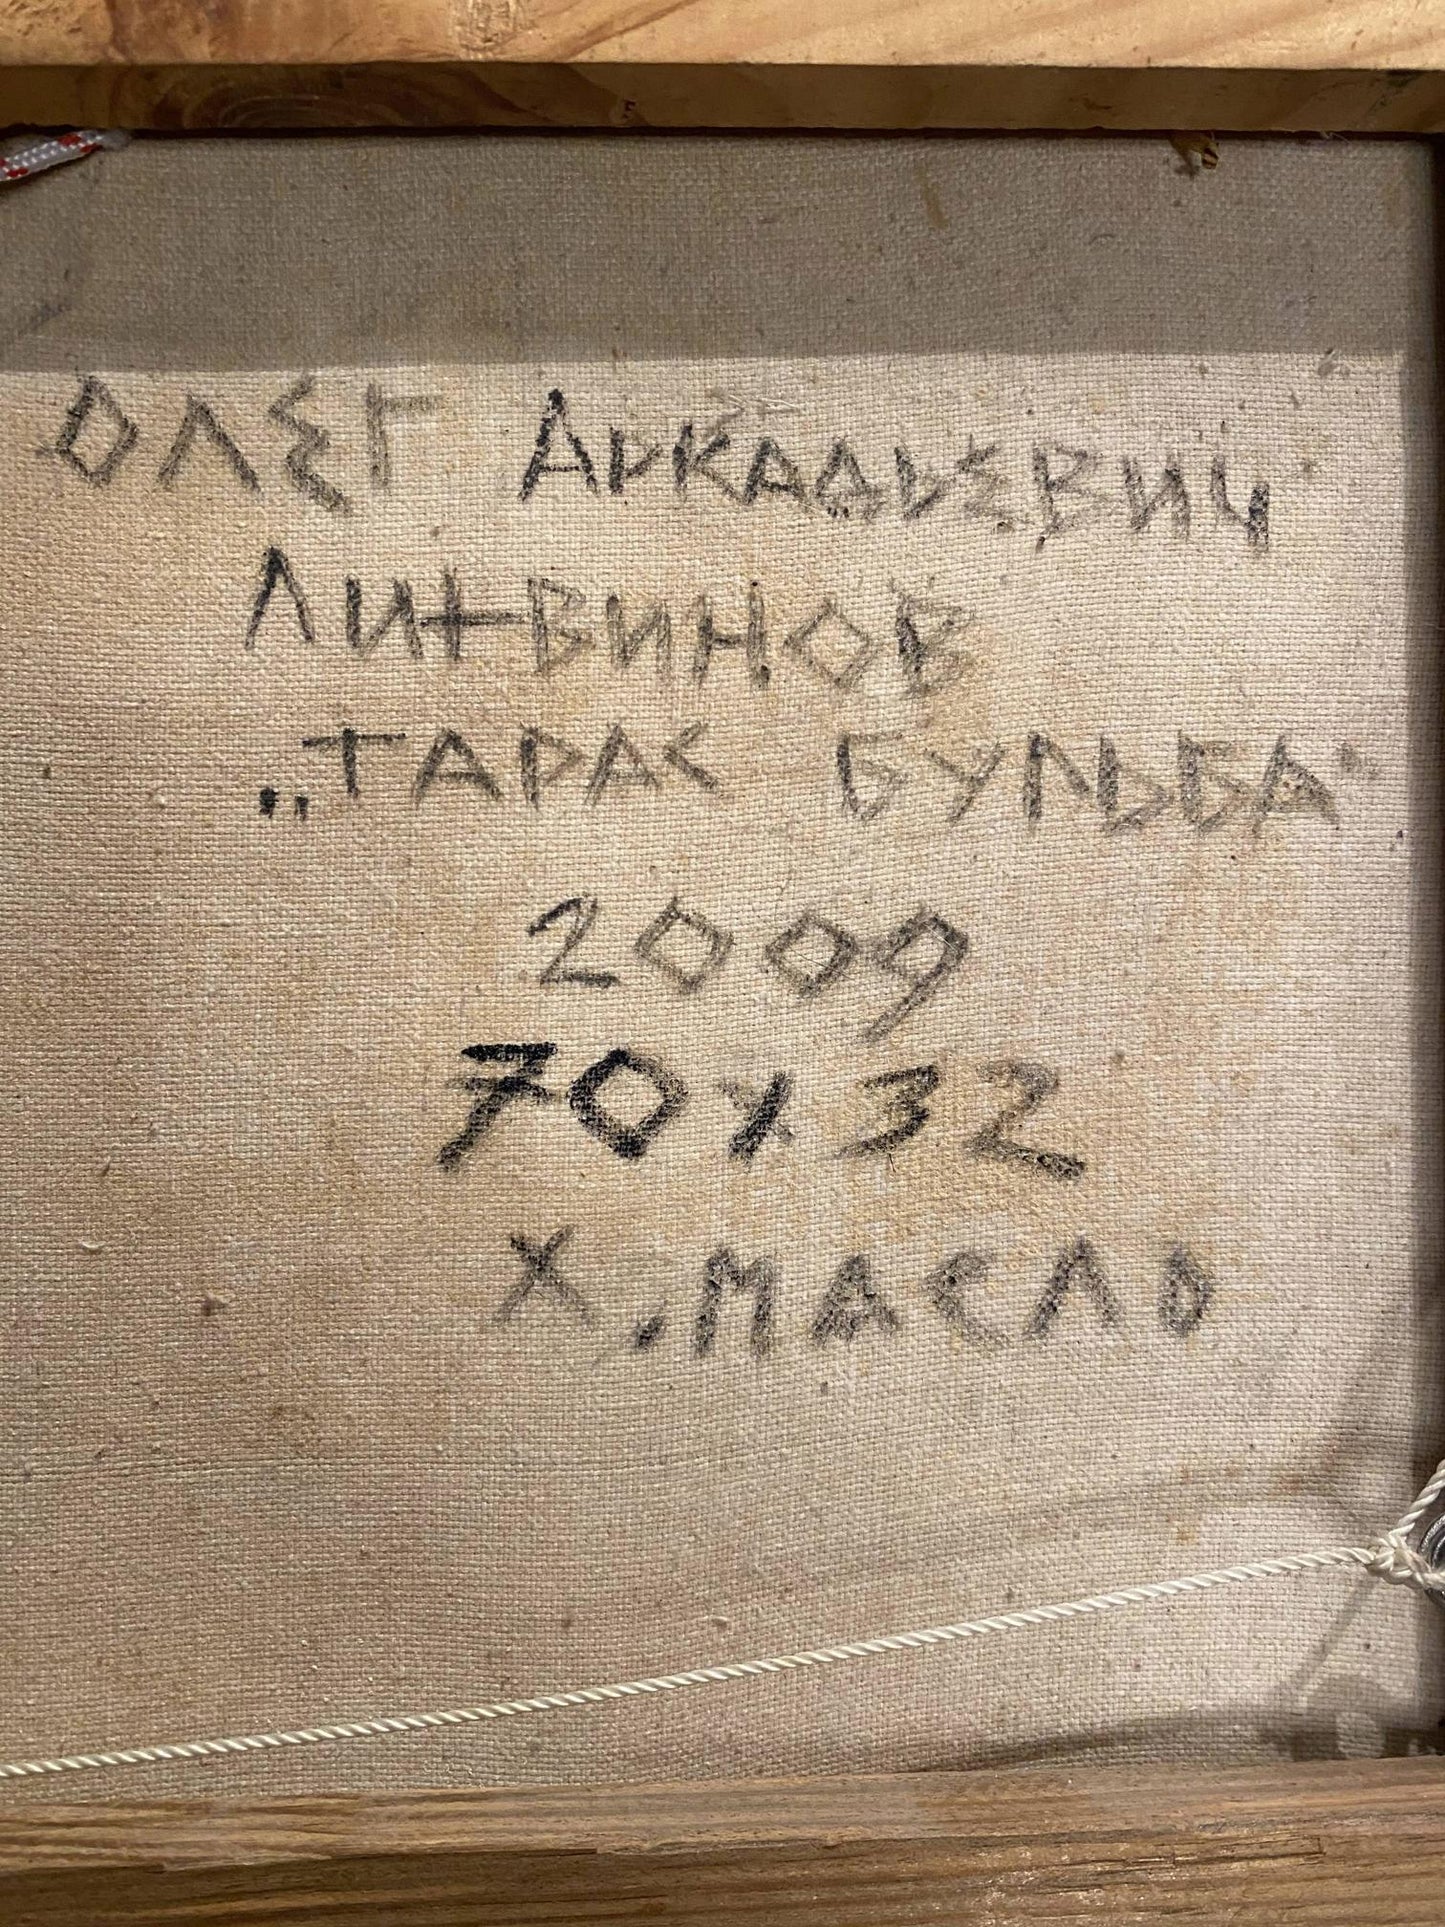 ОЛЕГ АРКАДЬЕВИЧ
ЛИТВИНОВ
„ТАРАС БУЛЬБА"
2009
70х32
Х.МАСЛО